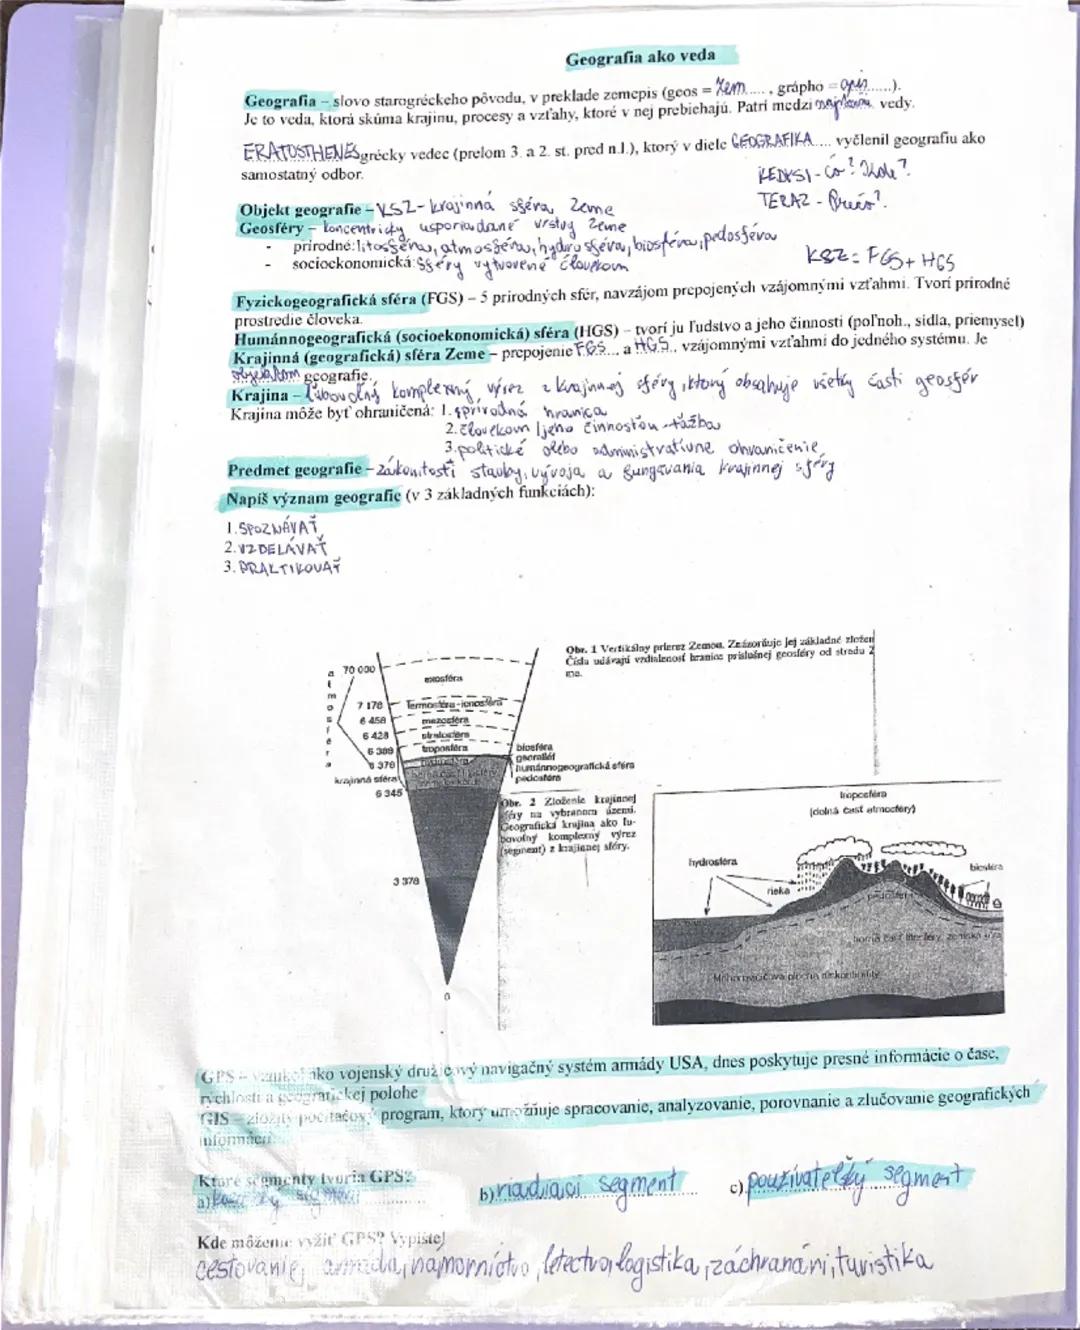 Geografia ako veda
Geografia – slovo starogréckeho pôvodu, v preklade zemepis (geos = Zem....., grápho = opis......).
Je to veda, ktorá skúma krajinu, procesy a vzťahy, ktoré v nej prebiehajú. Patrí medzi vedy.
ERATOSTHENES grécky vedec (prelom 3. a 2. st. pred n.l.), ktorý v diele GEOGRAFIKA.... vyčlenil geografiu ako
samostatný odbor.
KEDYSI - čo? Kde?
TERAZ - Prečo?
Objekt geografie – KSZ - krajinná sféra Zeme
Geosféry – koncentricky usporiadané vrstvy Zeme
- prírodné: litosféra, atmosféra, hydrosféra, biosféra, pedosféra
- socioekonomická: sféry vytvorené človekom
KSZ = FGS + HGS
Fyzickogeografická sféra (FGS) – 5 prírodných sfér, navzájom prepojených vzájomnými vzťahmi. Tvorí prírodné
prostredie človeka.
Humánnogeografická (socioekonomická) sféra (HGS) – tvorí ju ľudstvo a jeho činnosti (poľnoh., sídla, priemysel)
Krajinná (geografická) sféra Zeme – prepojenie FGS.... a HGS.. vzájomnými vzťahmi do jedného systému. Je
objektom geografie.
Krajina – ľubovoľný komplexný výrez z krajinnej sféry, ktorý obsahuje všetky časti geosfér
Krajina môže byť ohraničená: 1. prírodná hranica
2. človekom / jeho činnosťou - ťažba
3. politické alebo administratívne ohraničenie
Predmet geografie – zákonitosti stavby, vývoja a fungovania krajinnej sféry
Napíš význam geografie (v 3 základných funkciách):
1. SPOZNÁVAŤ
2. VZDELÁVAŤ
3. PRAKTIKOVAŤ
Obr. 1 Vertikálny prierez Zemou. Znázorňuje jej základné zložen
Čísla udávajú vzdialenosť hraníc príslušnej geosféry od stredu Z
me.
atmosféra
70 000
exosféra
7 178
Termosféra - ionosféra
6 458
mezosféra
6 428
stratosféra
6 389
troposféra
6 378
krajinná sféra
6 345
biosféra
georeliéf
humánnogeografická sféra
pedosféra
3 378
0
Obr. 2 Zloženie krajinnej
sféry na vybranom území.
Geografická krajina ako ľu-
bovoľný komplexný výrez
(segment) z krajinnej sféry.
troposféra
(dolná časť atmosféry)
hydrosféra
rieka
biosféra
pedosféra
horná časť litosféry, zemská kôra
Mohorovičičova plocha diskontinuity
GPS – vznikol ako vojenský družicový navigačný systém armády USA, dnes poskytuje presné informácie o čase,
rýchlosti a geografickej polohe
GIS – zložitý počítačový program, ktorý umožňuje spracovanie, analyzovanie, porovnanie a zlučovanie geografických
informácií
Ktoré segmenty tvoria GPS?
a) segment
b) riadiaci segment
c) používateľský segment
Kde môžeme využiť GPS? Vypíšte!
cestovanie, armáda, námorníctvo, letectvo, logistika, záchranári, turistika